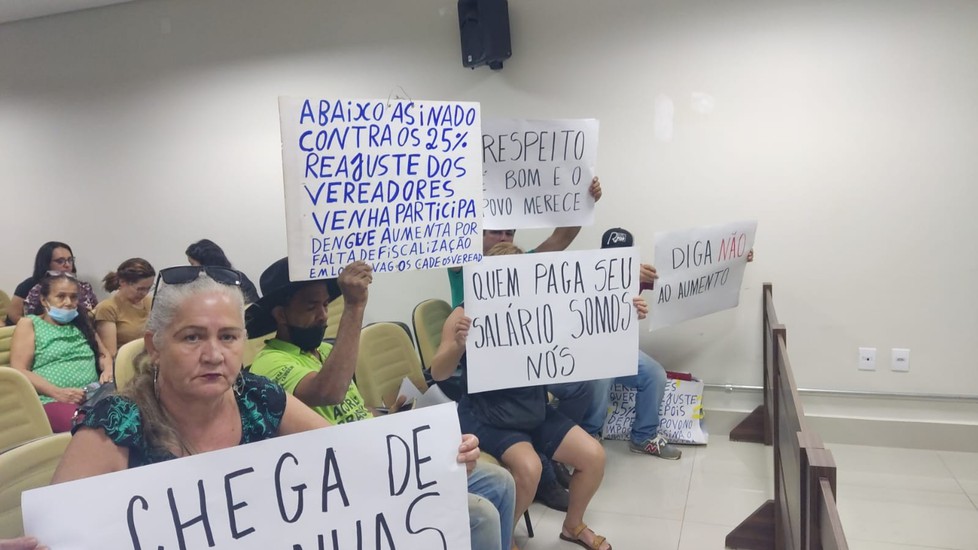 ABAIXO ASINADO
CONTRA OS 25%
REAJUSTE DOS
VEREADORES
VENHA PARTICIPA
DENGUE AUMENTA POR
FALTA DE FISCALIZAÇÃO
EM LOTES VAGOS CADE OS VEREAD
RESPEITO
É BOM E O
POVO MERECE
DIGA NÃO
AO AUMENTO
QUEM PAGA SEU
SALÁRIO SOMOS
NÓS
25%
DEPOIS
CHEGA DE